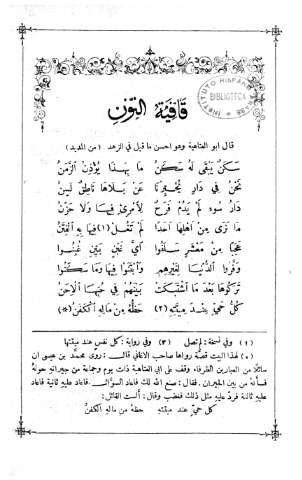 INSTITUTO HISPANO
BIBLIOTECA
قافية النون
قال ابو العتاهية وهو احسن ما قيل في الزهد (من المديد)
سَكَنٌ يَبْقَى لَهُ سَكَنُ مَا بِهٰذَا يُؤْذِنُ الزَّمَنُ
نَحْنُ فِي دَارٍ يُخَبِّرُنَا عَنْ بَلَاهَا نَاطِقٌ لَسِنُ
دَارُ سُوءٍ لَمْ يَدُمْ فَرَحٌ لِأمْرِئٍ فِيهَا وَلَا حَزَنُ
مَا نَرَى مِنْ اهْلِهَا احَدًا لَمْ تَغُلْ (١) فِيهَا بِهِ الْفِتَنُ
عَجَبًا مِنْ مَعْشَرٍ سَلَفُوا أَيَّ غَبْنٍ بَيِّنٍ غُبِنُوا
وَفَّرُوا الدُّنْيَا لِغَيْرِهِمِ وَابْتَنَوْا فِيهَا وَمَا سَكَنُوا
تَرَكُوهَا بَعْدَ مَا اشْتَبَكَتْ بَيْنَهُمْ فِي حُبِّهَا الْإِحَنُ
كُلُّ حَيٍّ عِنْدَ مِيتَتِهِ (٢) حَظُّهُ مِنْ مَالِهِ الْكَفَنُ (*)
(١) وفي نسخة: لم تصل (٢) وفي رواية: كل نفس عند ميتتها
(*) لهذا البيت قصة رواها صاحب الاغاني قال: روى محمد بن عيسى ان
سائلًا من العيارين الظرفاء وقف على ابي العتاهية ذات يوم وجماعة من جيرانه حوله
فسأله من بين الجيران. فقال: صنع الله لك فاعاد السؤال. فاعاد عليه ثانية فاعاد
عليه ثالثة فرد عليه مثل ذلك فغضب وقال: ألست القائل:
كل حي عند ميتته حظه من ماله الكفن